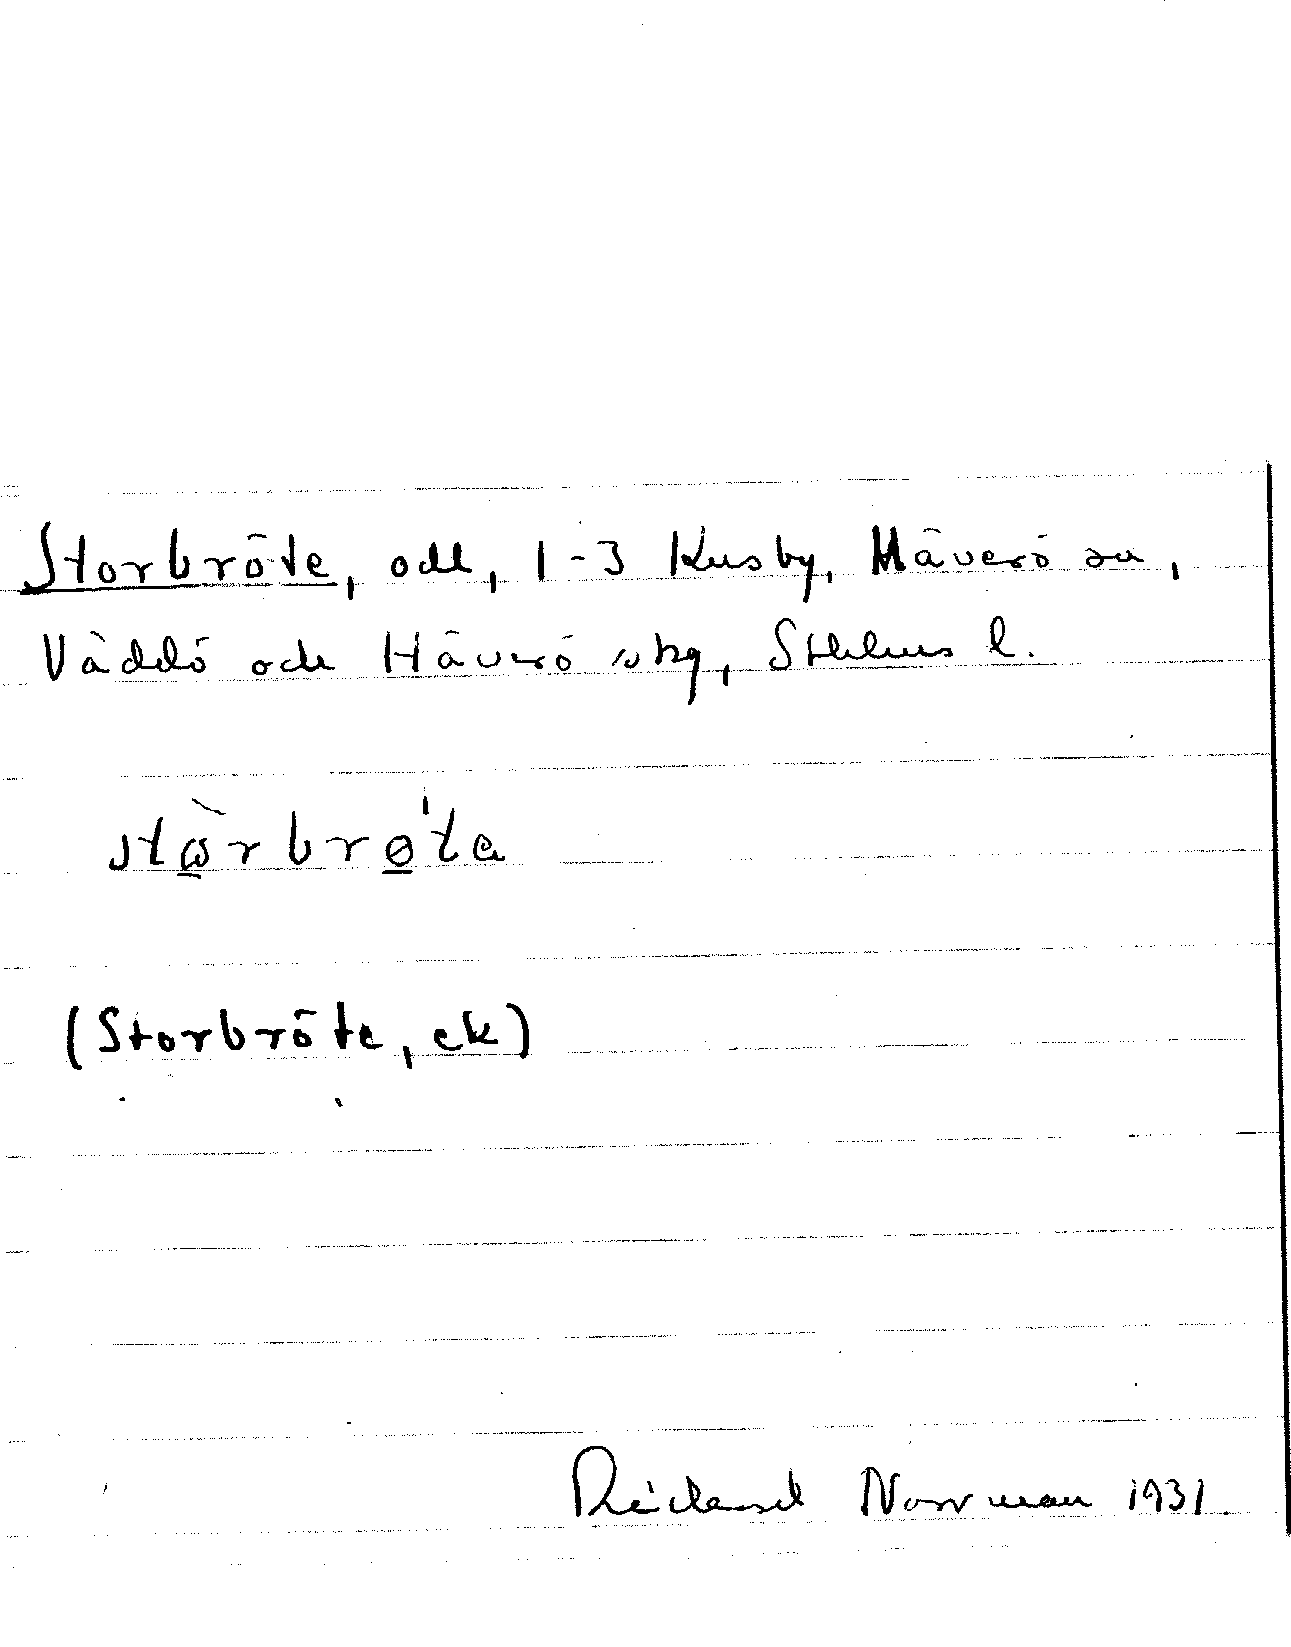 Storbröte, odl, 1-3 Kusby, Häverö sn,
Väddö och Häverö skg, Sthlms l.
stɷ̀rbrø'ta
(Storbröte, ek)
Rickard Norrman 1931